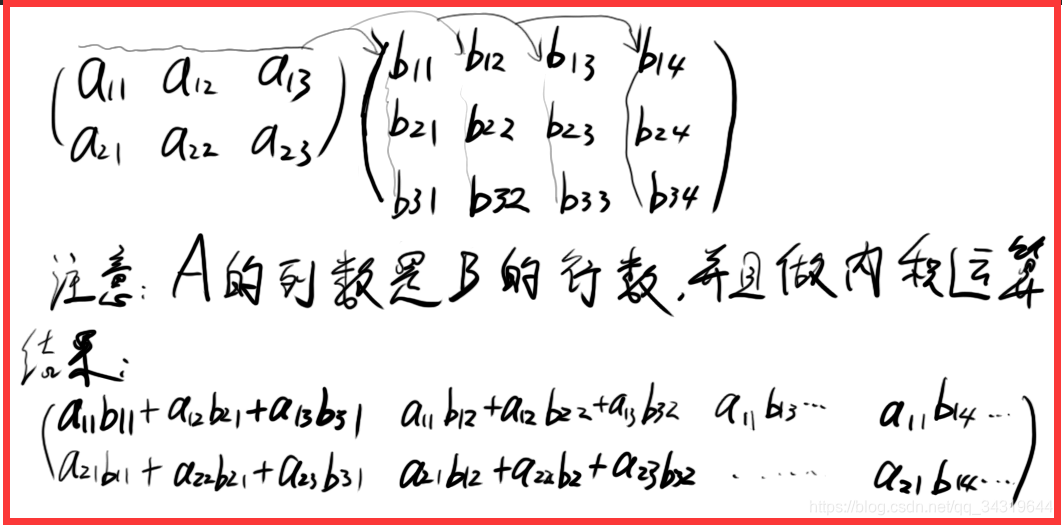 a11 a12 a13 b11 b12 b13 b14
a21 a22 a23 b21 b22 b23 b24
b31 b32 b33 b34
注意: A的列数是B的行数,并且做内积运算
结果:
a11b11+a12b21+a13b31 a11b12+a12b22+a13b32 a11b13... a11b14...
a21b11+a22b21+a23b31 a21b12+a22b2+a23b32 ...... a21b14...
https://blog.csdn.net/qq_34319644